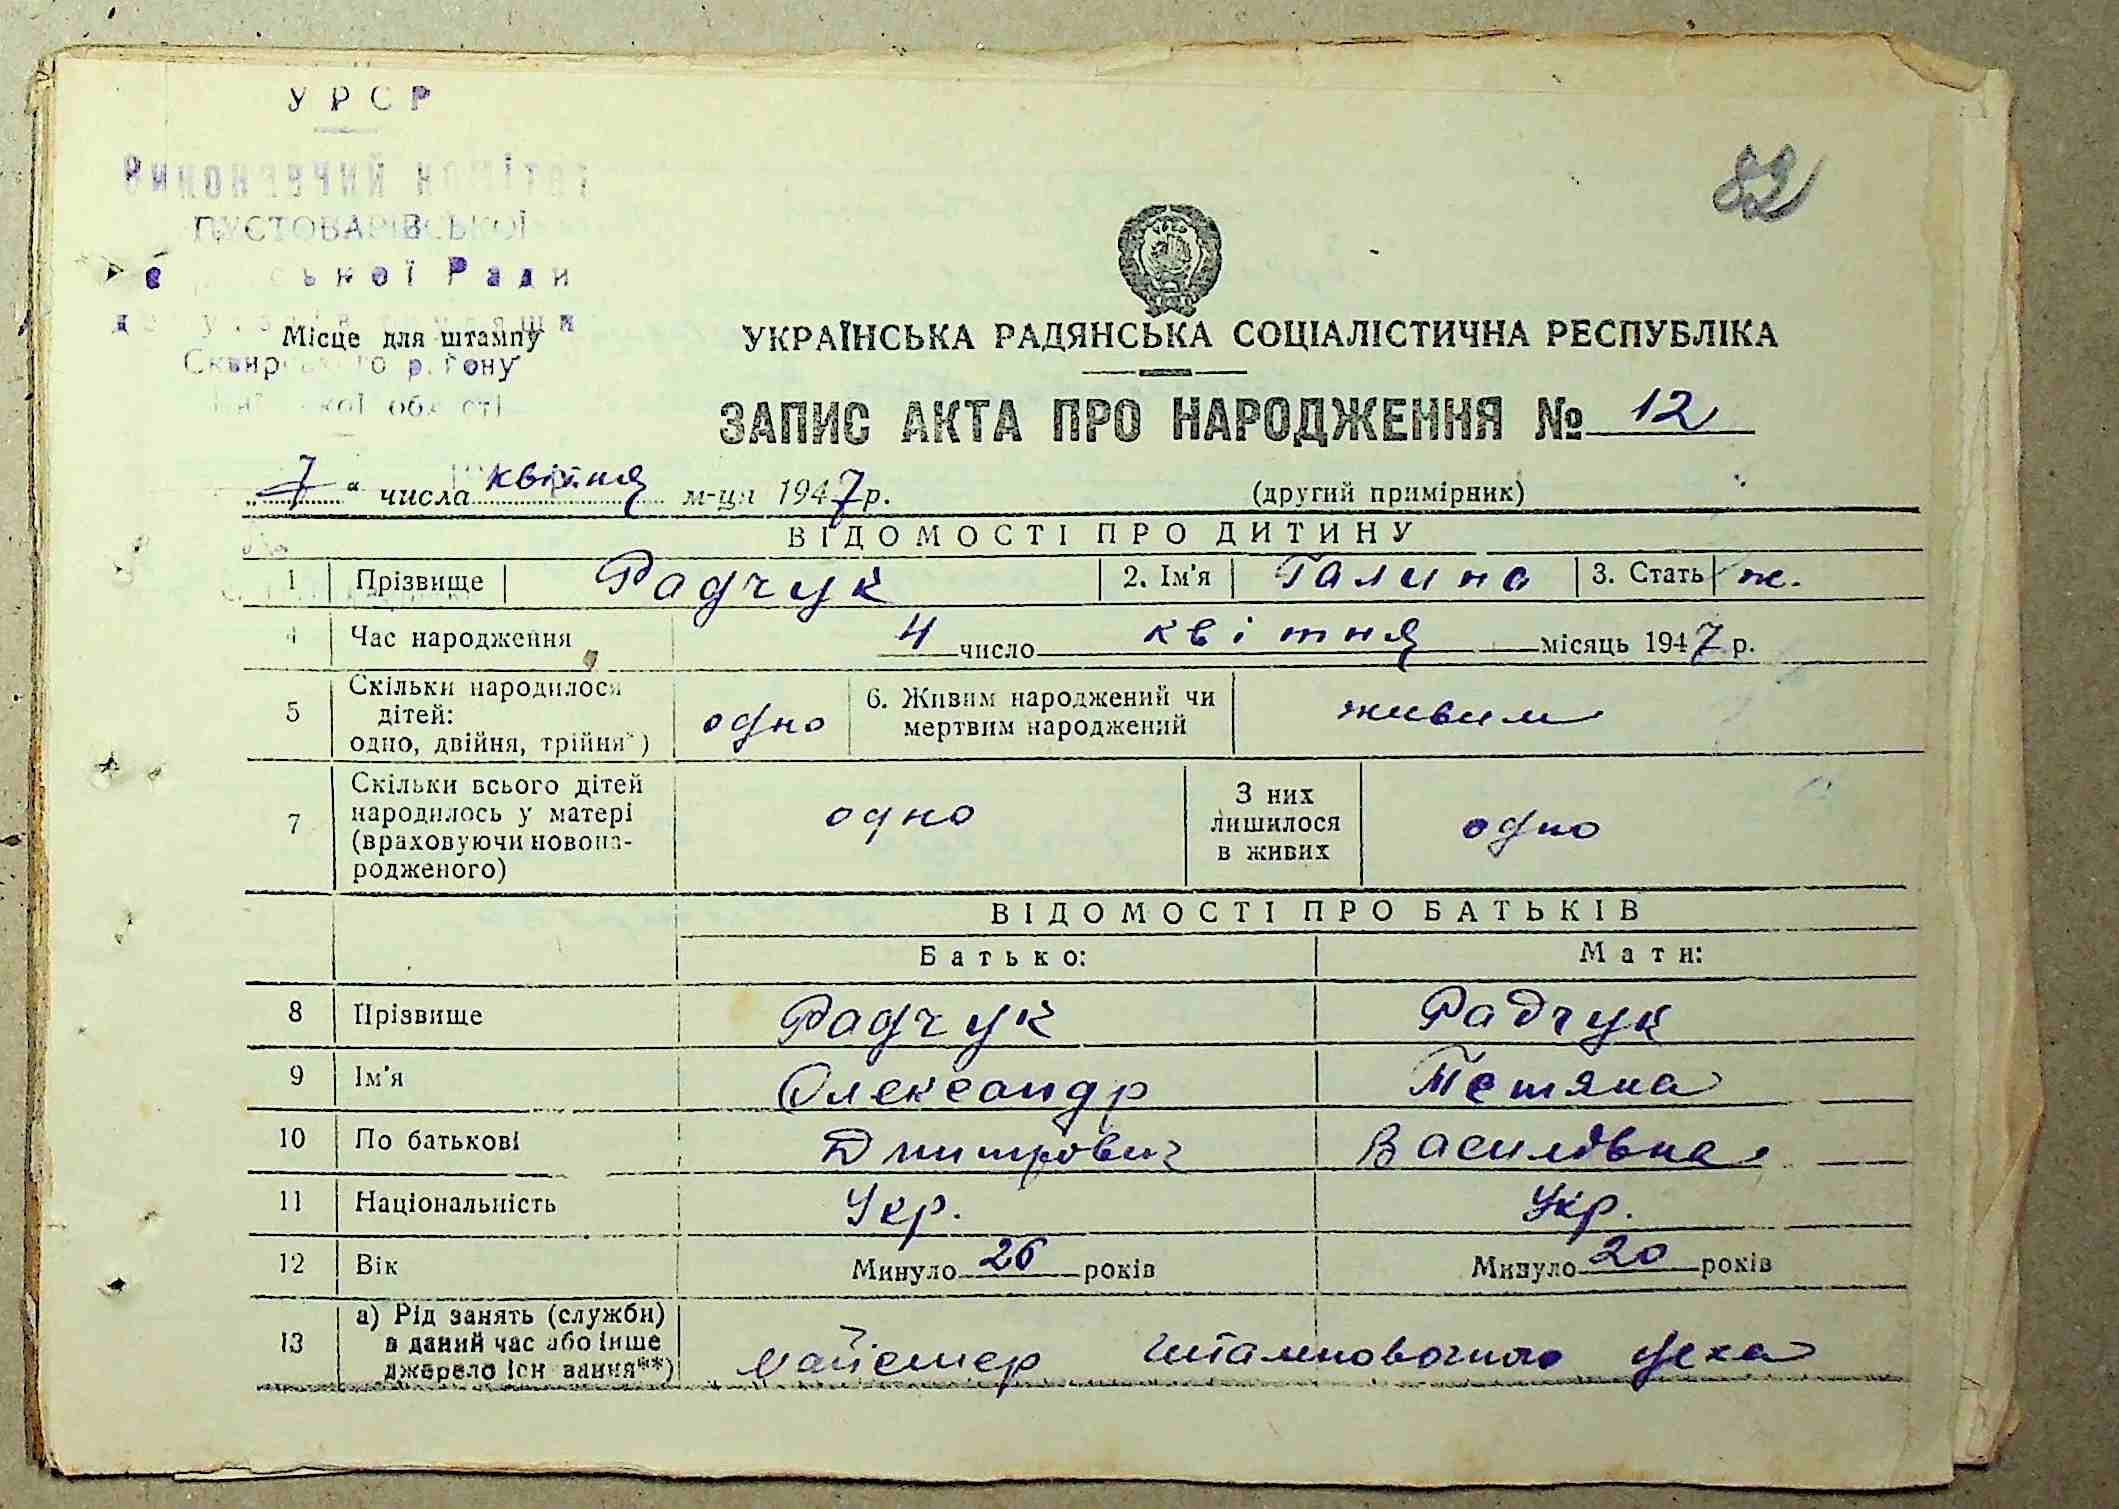 УРСР
Виконавчий комітет
ПУСТОВАРІВСЬКОЇ
сільської Ради
депутатів трудящих
Місце для штампу
Сквирського району
Київської області
82
УКРАЇНСЬКА РАДЯНСЬКА СОЦІАЛІСТИЧНА РЕСПУБЛІКА
ЗАПИС АКТА ПРО НАРОДЖЕННЯ № 12
„7“ числа квітня м-ця 1947 р. (другий примірник)
ВІДОМОСТІ ПРО ДИТИНУ
1 Прізвище Радчук 2. Ім'я Галина 3. Стать ж.
4 Час народження 4 число квітня місяць 1947 р.
5 Скільки народилося дітей: одно, двійня, трійня*) одно 6. Живим народжений чи мертвим народжений живим
7 Скільки всього дітей народилось у матері (враховуючи новонародженого) одно З них лишилося в живих одно
ВІДОМОСТІ ПРО БАТЬКІВ
Батько: Мати:
8 Прізвище Радчук Радчук
9 Ім'я Олександр Тетяна
10 По батькові Дмитрович Василівна
11 Національність Укр. Укр.
12 Вік Минуло 26 років Минуло 20 років
13 а) Рід занять (служби) в даний час або інше джерело існування**) майстер штамповочного цеха